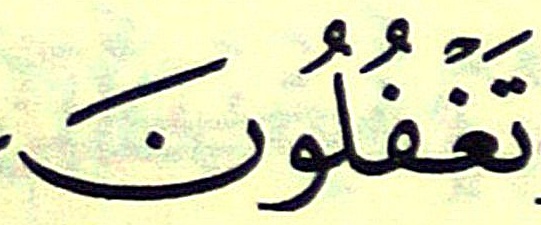 تَغْفُلُونَ